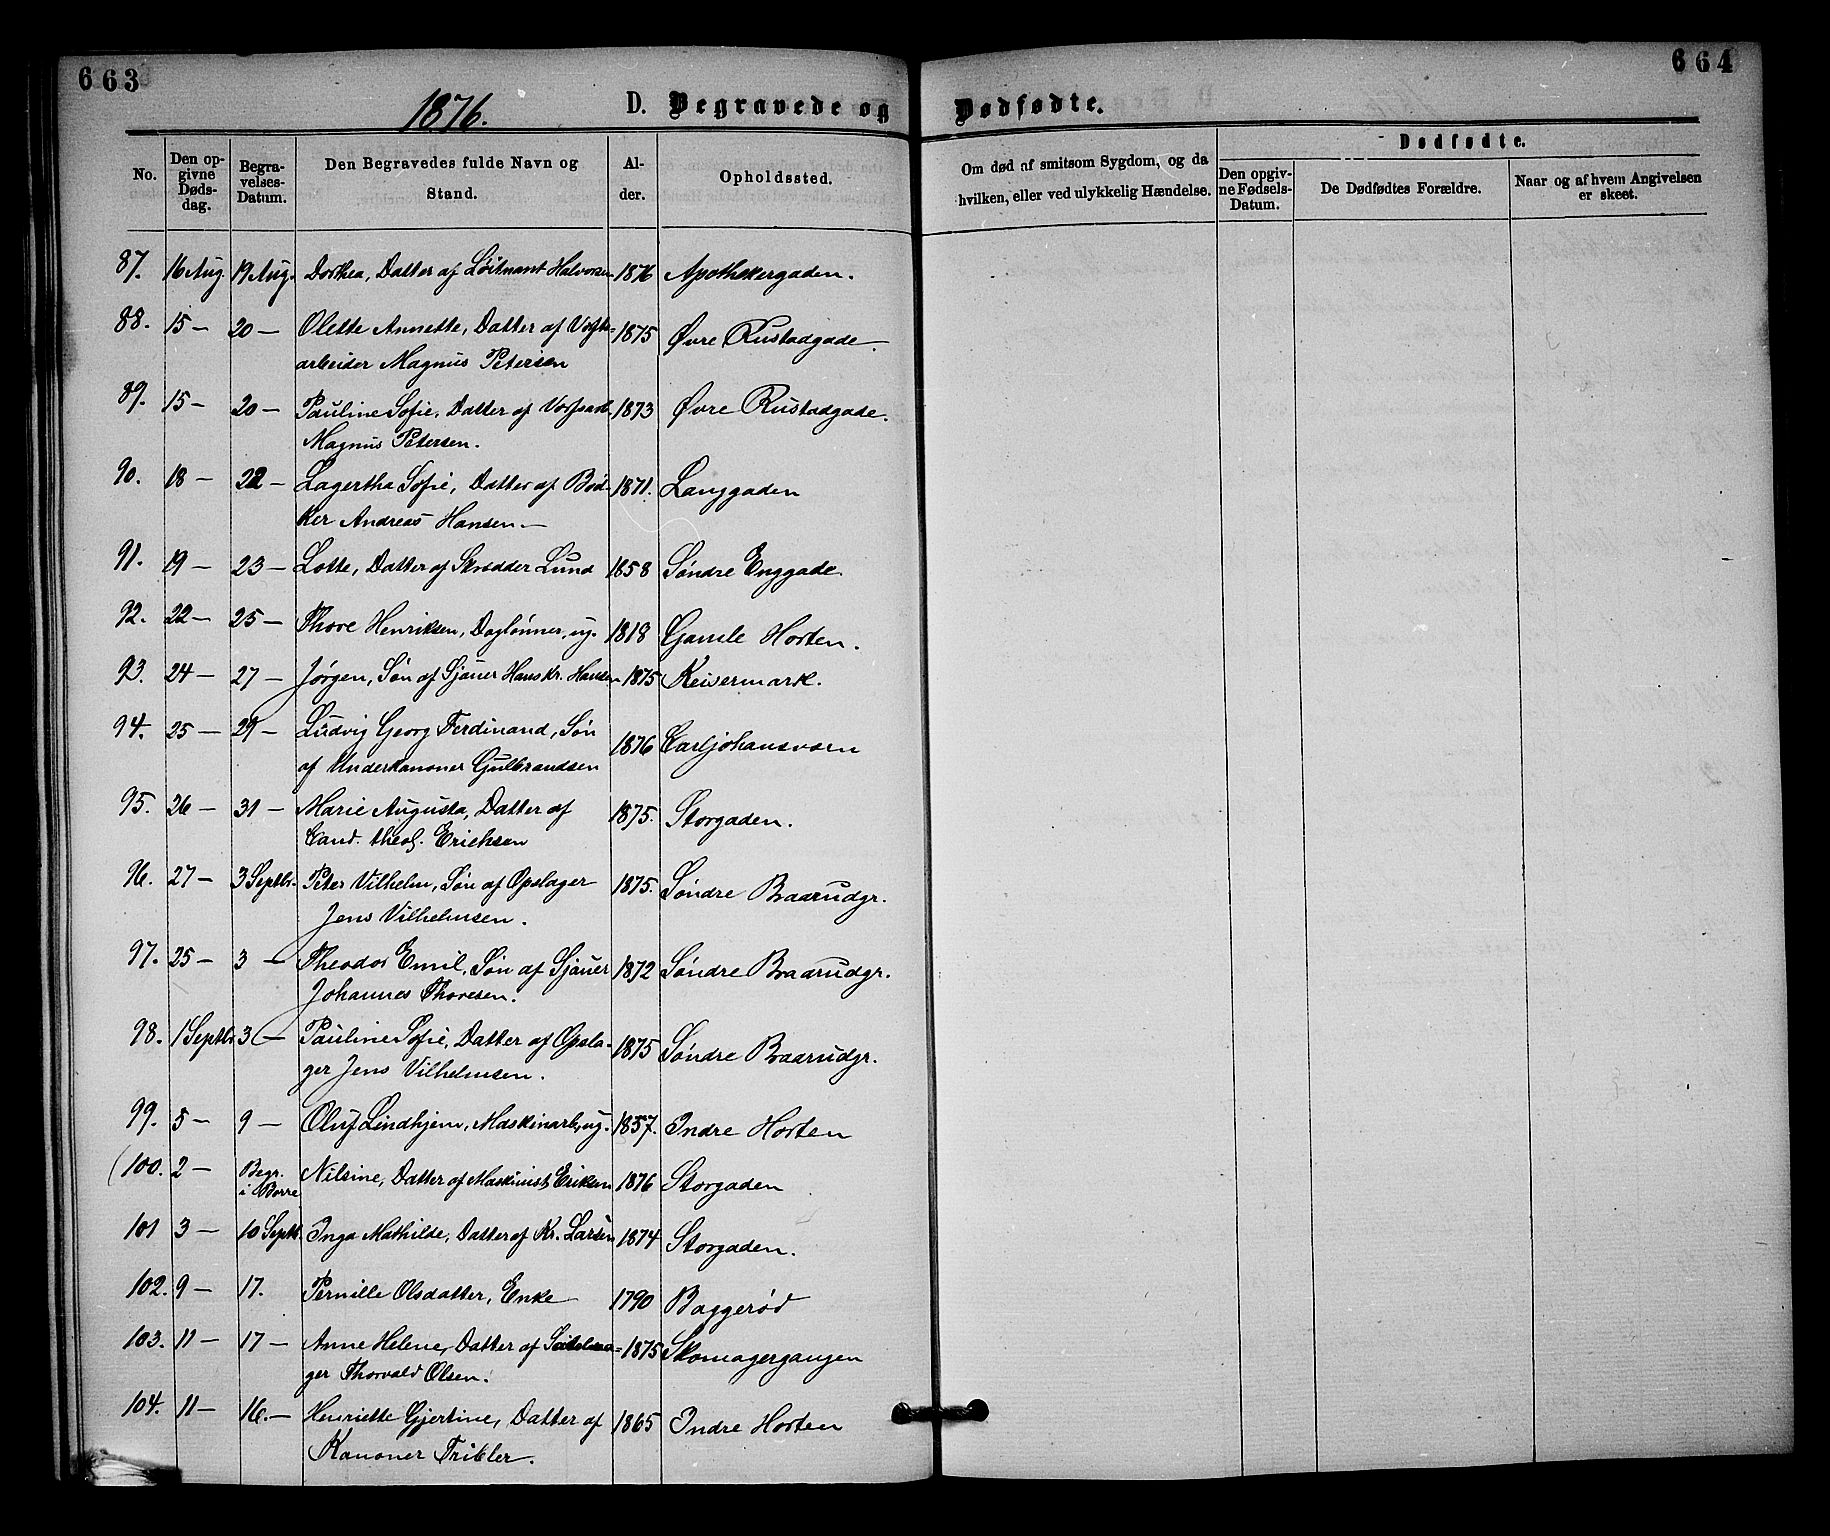 663
664
1876. D. Begravede og Dødfødte.
No. Den opgivne Dødsdag. Begravelses-Datum. Den Begravedes fulde Navn og Stand. Alder. Opholdssted. Om død af smitsom Sygdom, og da hvilken, eller ved ulykkelig Hændelse. Dødfødte. Den opgivne Fødsels-Datum. De Dødfødtes Forældre. Naar og af hvem Angivelsen er skeet.
87. 16 Aug. 19 Aug. Dorthea, Datter af Løitnant Halvorsen 1876 Apothekergaden.
88. 15 — 20 — Olette Annette, Datter af Værfts- 1875 Øvre Rustadgade.
arbeider Magnus Petersen
89. 15 — 20 — Pauline Sofie, Datter af 1873 Øvre Rustadgade.
Magnus Petersen.
90. 18 — 22 — Lagertha Sofie, Datter af Bød- 1871. Langgaden
ker Andreas Hansen. —
91. 19 — 23 — Lotte, Datter af Skrædder Lund 1858 Søndre Enggade.
92. 22 — 25 — Thore Henriksen, Daglønner, ug. 1818 Gamle Horten.
93. 24 — 27 — Jørgen, Søn af Sjauer Hans Kr. Hansen 1875 Keisermark.
94. 25 — 29 — Ludvig Georg Ferdinand, Søn 1876 Carljohansværn
af Underkanoner Gulbrandsen
95. 26 — 31 — Marie Augusta, Datter af 1875. Storgaden.
Cand. theol. Ericksen
96. 27 — 3 Septbr. Peter Vilhelm, Søn af Opslager 1875. Søndre Baarudgr.
Jens Vilhelmsen.
97. 25 — 3 — Theodor Emil, Søn af Sjauer 1872 Søndre Baarudgr.
Johannes Thoresen.
98. 1 Septbr. 3 — Pauline Sofie, Datter af Opsla- 1875 Søndre Baarudgr.
ger Jens Vilhelmsen.
99. 5 — 9 — Oluf Lindhjem, Maskinarb., ug. 1857. Indre Horten
(100. 2 — Begr. i Borre Nilsine, Datter af Maskinist Eriksen 1876 Storgaden
101 3 — 10 Septb. Inga Mathilde, Datter af Kr. Larsen 1874 Storgaden.
102. 9 — 17. Pernille Olsdatter, Enke 1790 Baggerød
103. 11 — 17 — Anne Helene, Datter af Seilma- 1875 Skomagergangen
ger Thorvald Olsen.
104. 11 — 16. — Henriette Gjertine, Datter af 1865 Indre Horten
Kanoner Tribler.